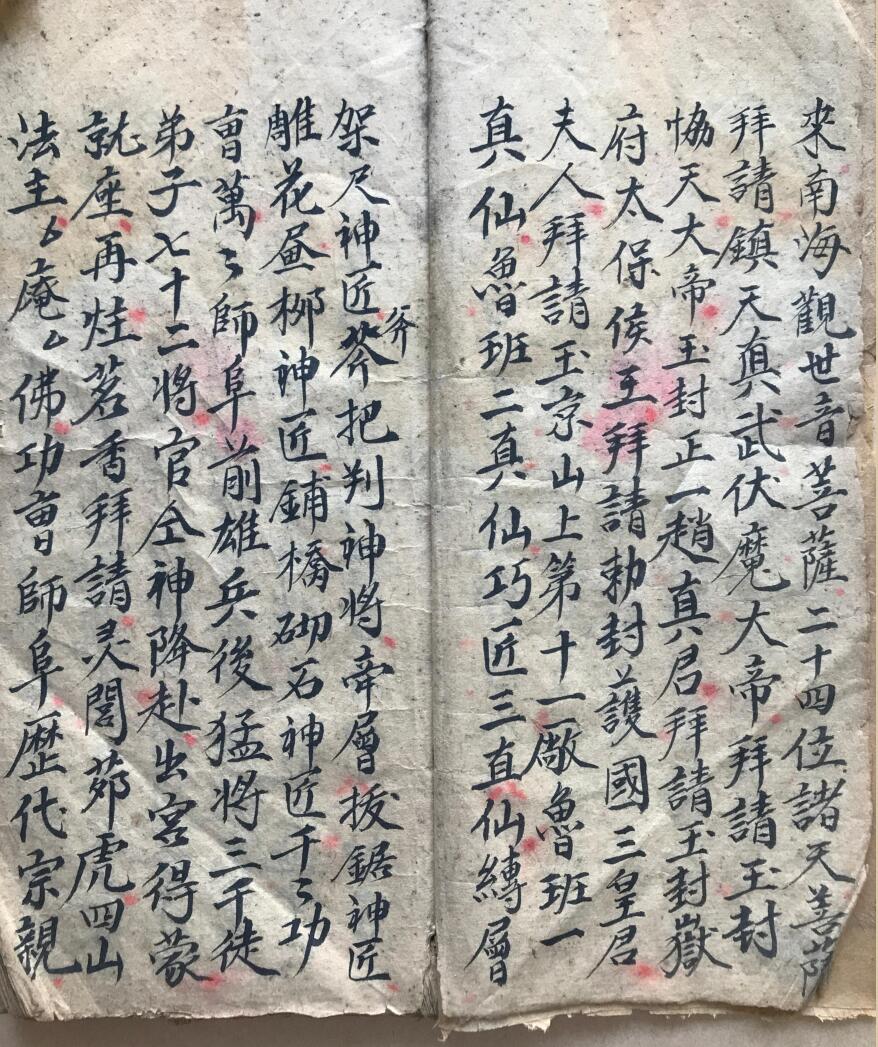 來南海觀世音菩薩二十四位諸天菩薩
拜請鎮天真武伏魔大帝拜請玉封
協天大帝玉封正一趙真君拜請玉封嶽
府太保侯王拜請勅封護國三皇君
夫人拜請玉京山上第十一殿魯班一
真仙魯班二真仙巧匠三直仙縳層
架尺神匠斧把判神將牽層扳鋸神匠
雕花昼柳神匠鋪橋砌石神匠千〻功
曺萬〻師阜前雄兵後猛将三千徒
弟子七十二將官仝神降赴出宮得蒙
就座再炷茗香拜請灵閭茆虎四山
法主〻庵〻佛功曺師阜歷代宗親